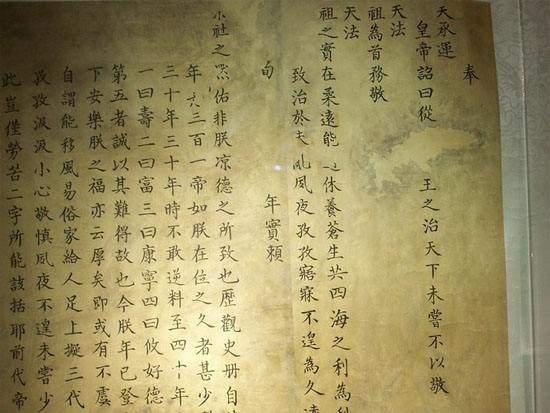 奉
天承運
皇帝詔曰從 王之治天下未嘗不以敬
天法
祖為首務敬
天法
祖之實在柔遠能 休養蒼生共四海之利為
致治於 夙夜孜孜寤寐不遑為久遠
旬 年實賴
社之 佑非朕凉德之所致也歷觀史册自
年 三百一帝如朕在位之久者甚少
三十年三十年時不敢逆料至四十年
一曰壽二曰富三曰康寧四曰攸好德
第五者誠以其難得故也今朕年已登
下安樂朕之福亦云厚矣即或有不虞
自謂能移風易俗家給人足上擬三代
孜孜汲汲小心敬慎夙夜不遑未嘗少
此豈僅勞苦二字所能該括耶前代帝